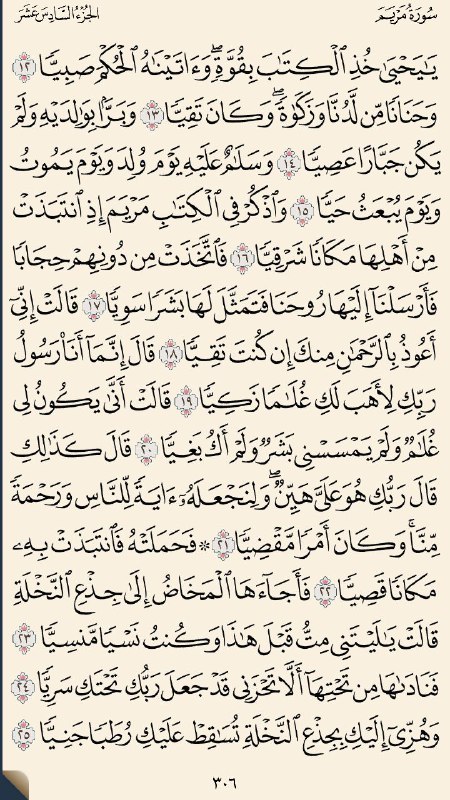 سُورَةُ مَرْيَمَ
الجُزْءُ السَّادِسَ عَشَرَ
يَٰيَحْيَىٰ خُذِ ٱلْكِتَٰبَ بِقُوَّةٍۖ وَءَاتَيْنَٰهُ ٱلْحُكْمَ صَبِيًّا ١٢
وَحَنَانًا مِّن لَّدُنَّا وَزَكَوٰةًۖ وَكَانَ تَقِيًّا ١٣ وَبَرًّۢا بِوَٰلِدَيْهِ وَلَمْ
يَكُن جَبَّارًا عَصِيًّا ١٤ وَسَلَٰمٌ عَلَيْهِ يَوْمَ وُلِدَ وَيَوْمَ يَمُوتُ
وَيَوْمَ يُبْعَثُ حَيًّا ١٥ وَٱذْكُرْ فِى ٱلْكِتَٰبِ مَرْيَمَ إِذِ ٱنتَبَذَتْ
مِنْ أَهْلِهَا مَكَانًا شَرْقِيًّا ١٦ فَٱتَّخَذَتْ مِن دُونِهِمْ حِجَابًا
فَأَرْسَلْنَآ إِلَيْهَا رُوحَنَا فَتَمَثَّلَ لَهَا بَشَرًا سَوِيًّا ١٧ قَالَتْ إِنِّىٓ
أَعُوذُ بِٱلرَّحْمَٰنِ مِنكَ إِن كُنتَ تَقِيًّا ١٨ قَالَ إِنَّمَآ أَنَا۠ رَسُولُ
رَبِّكِ لِأَهَبَ لَكِ غُلَٰمًا زَكِيًّا ١٩ قَالَتْ أَنَّىٰ يَكُونُ لِى
غُلَٰمٌ وَلَمْ يَمْسَسْنِى بَشَرٌ وَلَمْ أَكُ بَغِيًّا ٢٠ قَالَ كَذَٰلِكِ
قَالَ رَبُّكِ هُوَ عَلَىَّ هَيِّنٌۖ وَلِنَجْعَلَهُۥٓ ءَايَةً لِّلنَّاسِ وَرَحْمَةً
مِّنَّاۚ وَكَانَ أَمْرًا مَّقْضِيًّا ٢١ ۞ فَحَمَلَتْهُ فَٱنتَبَذَتْ بِهِۦ
مَكَانًا قَصِيًّا ٢٢ فَأَجَآءَهَا ٱلْمَخَاضُ إِلَىٰ جِذْعِ ٱلنَّخْلَةِ
قَالَتْ يَٰلَيْتَنِى مِتُّ قَبْلَ هَٰذَا وَكُنتُ نَسْيًا مَّنسِيًّا ٢٣
فَنَادَىٰهَا مِن تَحْتِهَآ أَلَّا تَحْزَنِى قَدْ جَعَلَ رَبُّكِ تَحْتَكِ سَرِيًّا ٢٤
وَهُزِّىٓ إِلَيْكِ بِجِذْعِ ٱلنَّخْلَةِ تُسَٰقِطْ عَلَيْكِ رُطَبًا جَنِيًّا ٢٥
٣٠٦